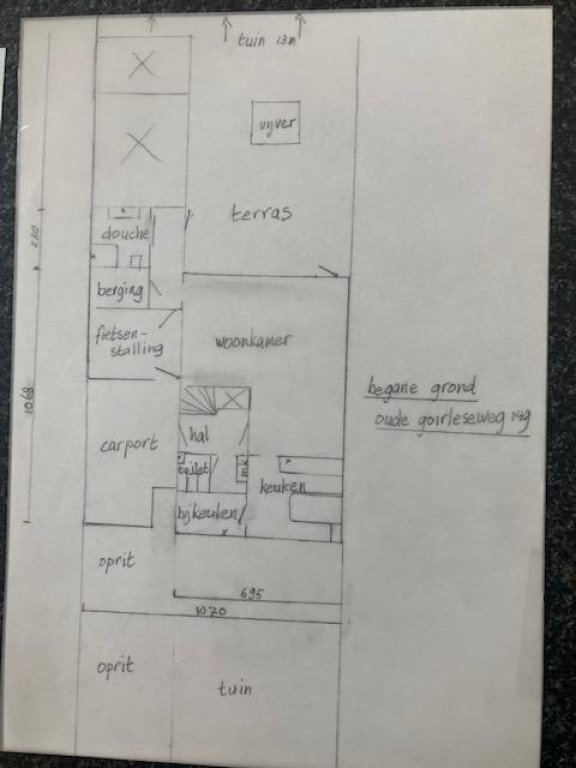 tuin 13m
vijver
terras
douche
2.20
berging
fietsen-
stalling
woonkamer
begane grond
oude goirleseweg 149
10.68
carport
hal
toilet
keuken
bijkeuken
oprit
6.95
10.70
oprit
tuin